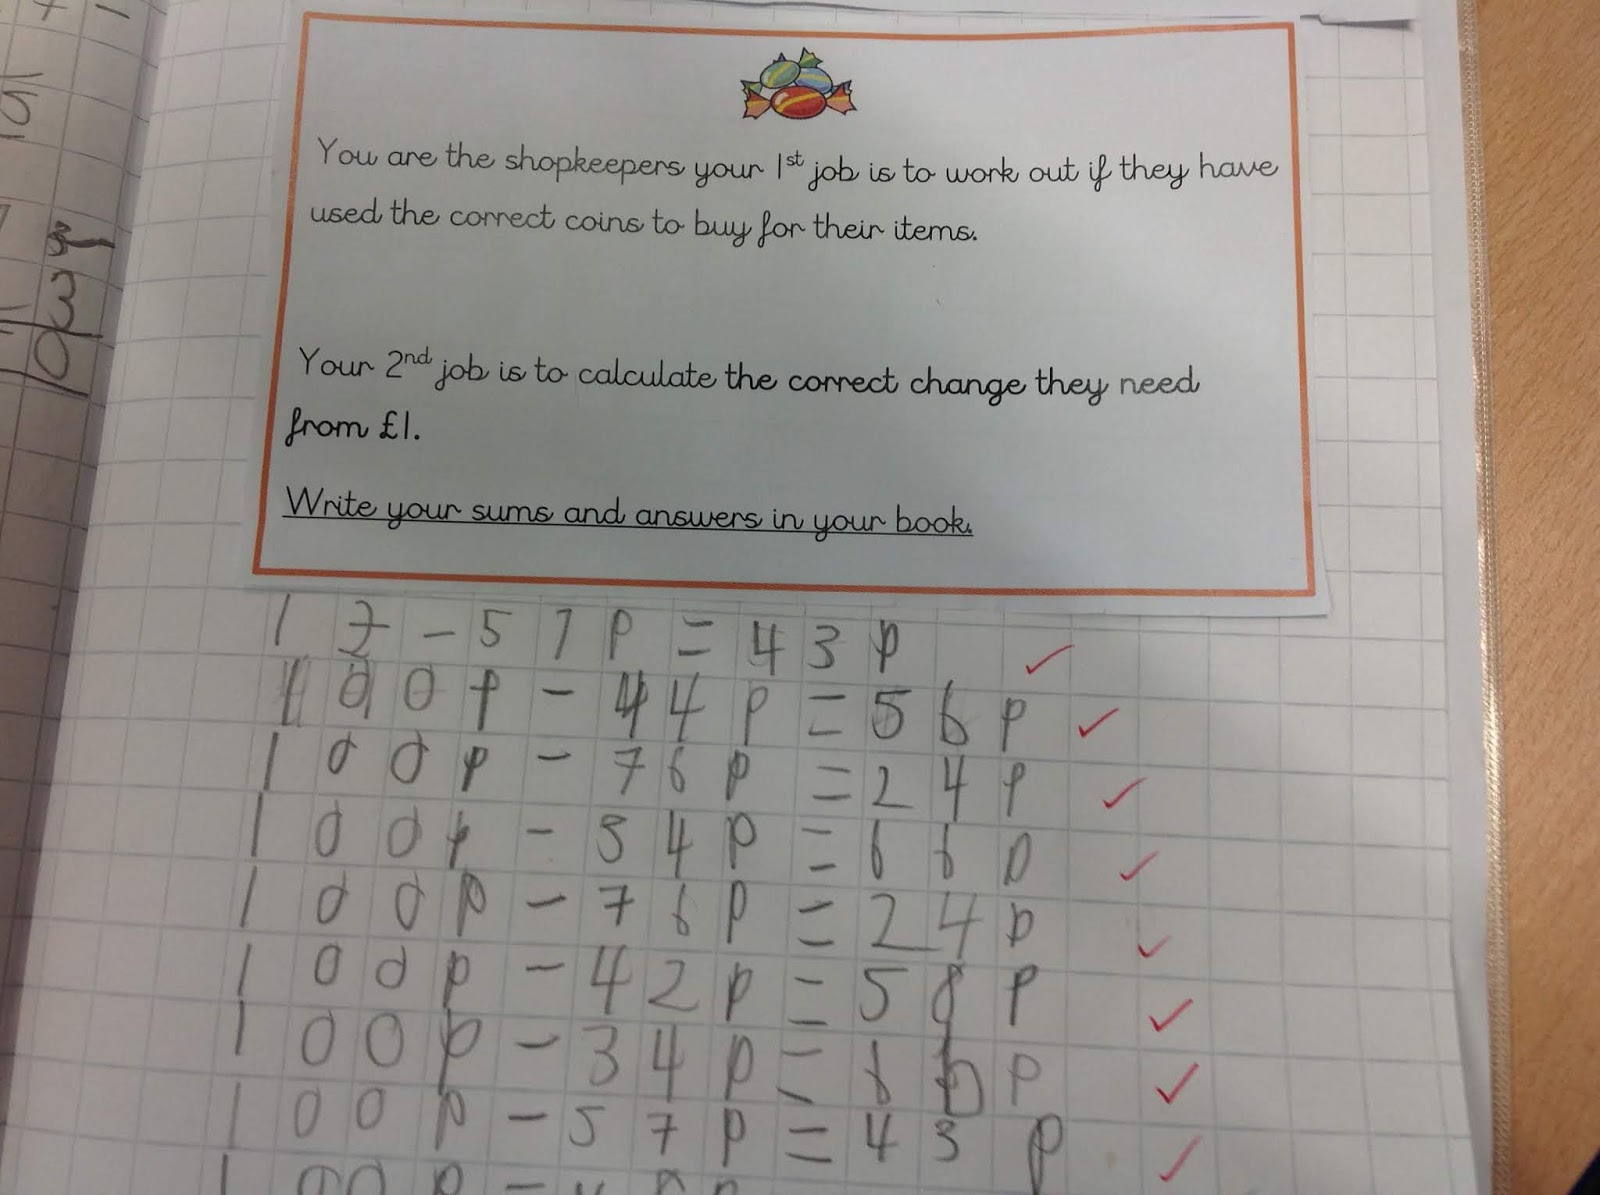 You are the shopkeepers your 1st job is to work out if they have
used the correct coins to buy for their items.
Your 2nd job is to calculate the correct change they need
from £1.
Write your sums and answers in your book.
1 £ - 5 7 p = 4 3 p
1 0 0 p - 4 4 p = 5 6 p
1 0 0 p - 7 6 p = 2 4 p
1 0 0 p - 3 4 p = 6 6 p
1 0 0 p - 7 6 p = 2 4 p
1 0 0 p - 4 2 p = 5 8 p
1 0 0 p - 3 4 p = 6 6 p
1 0 0 p - 5 7 p = 4 3 p
1 0 0 p -